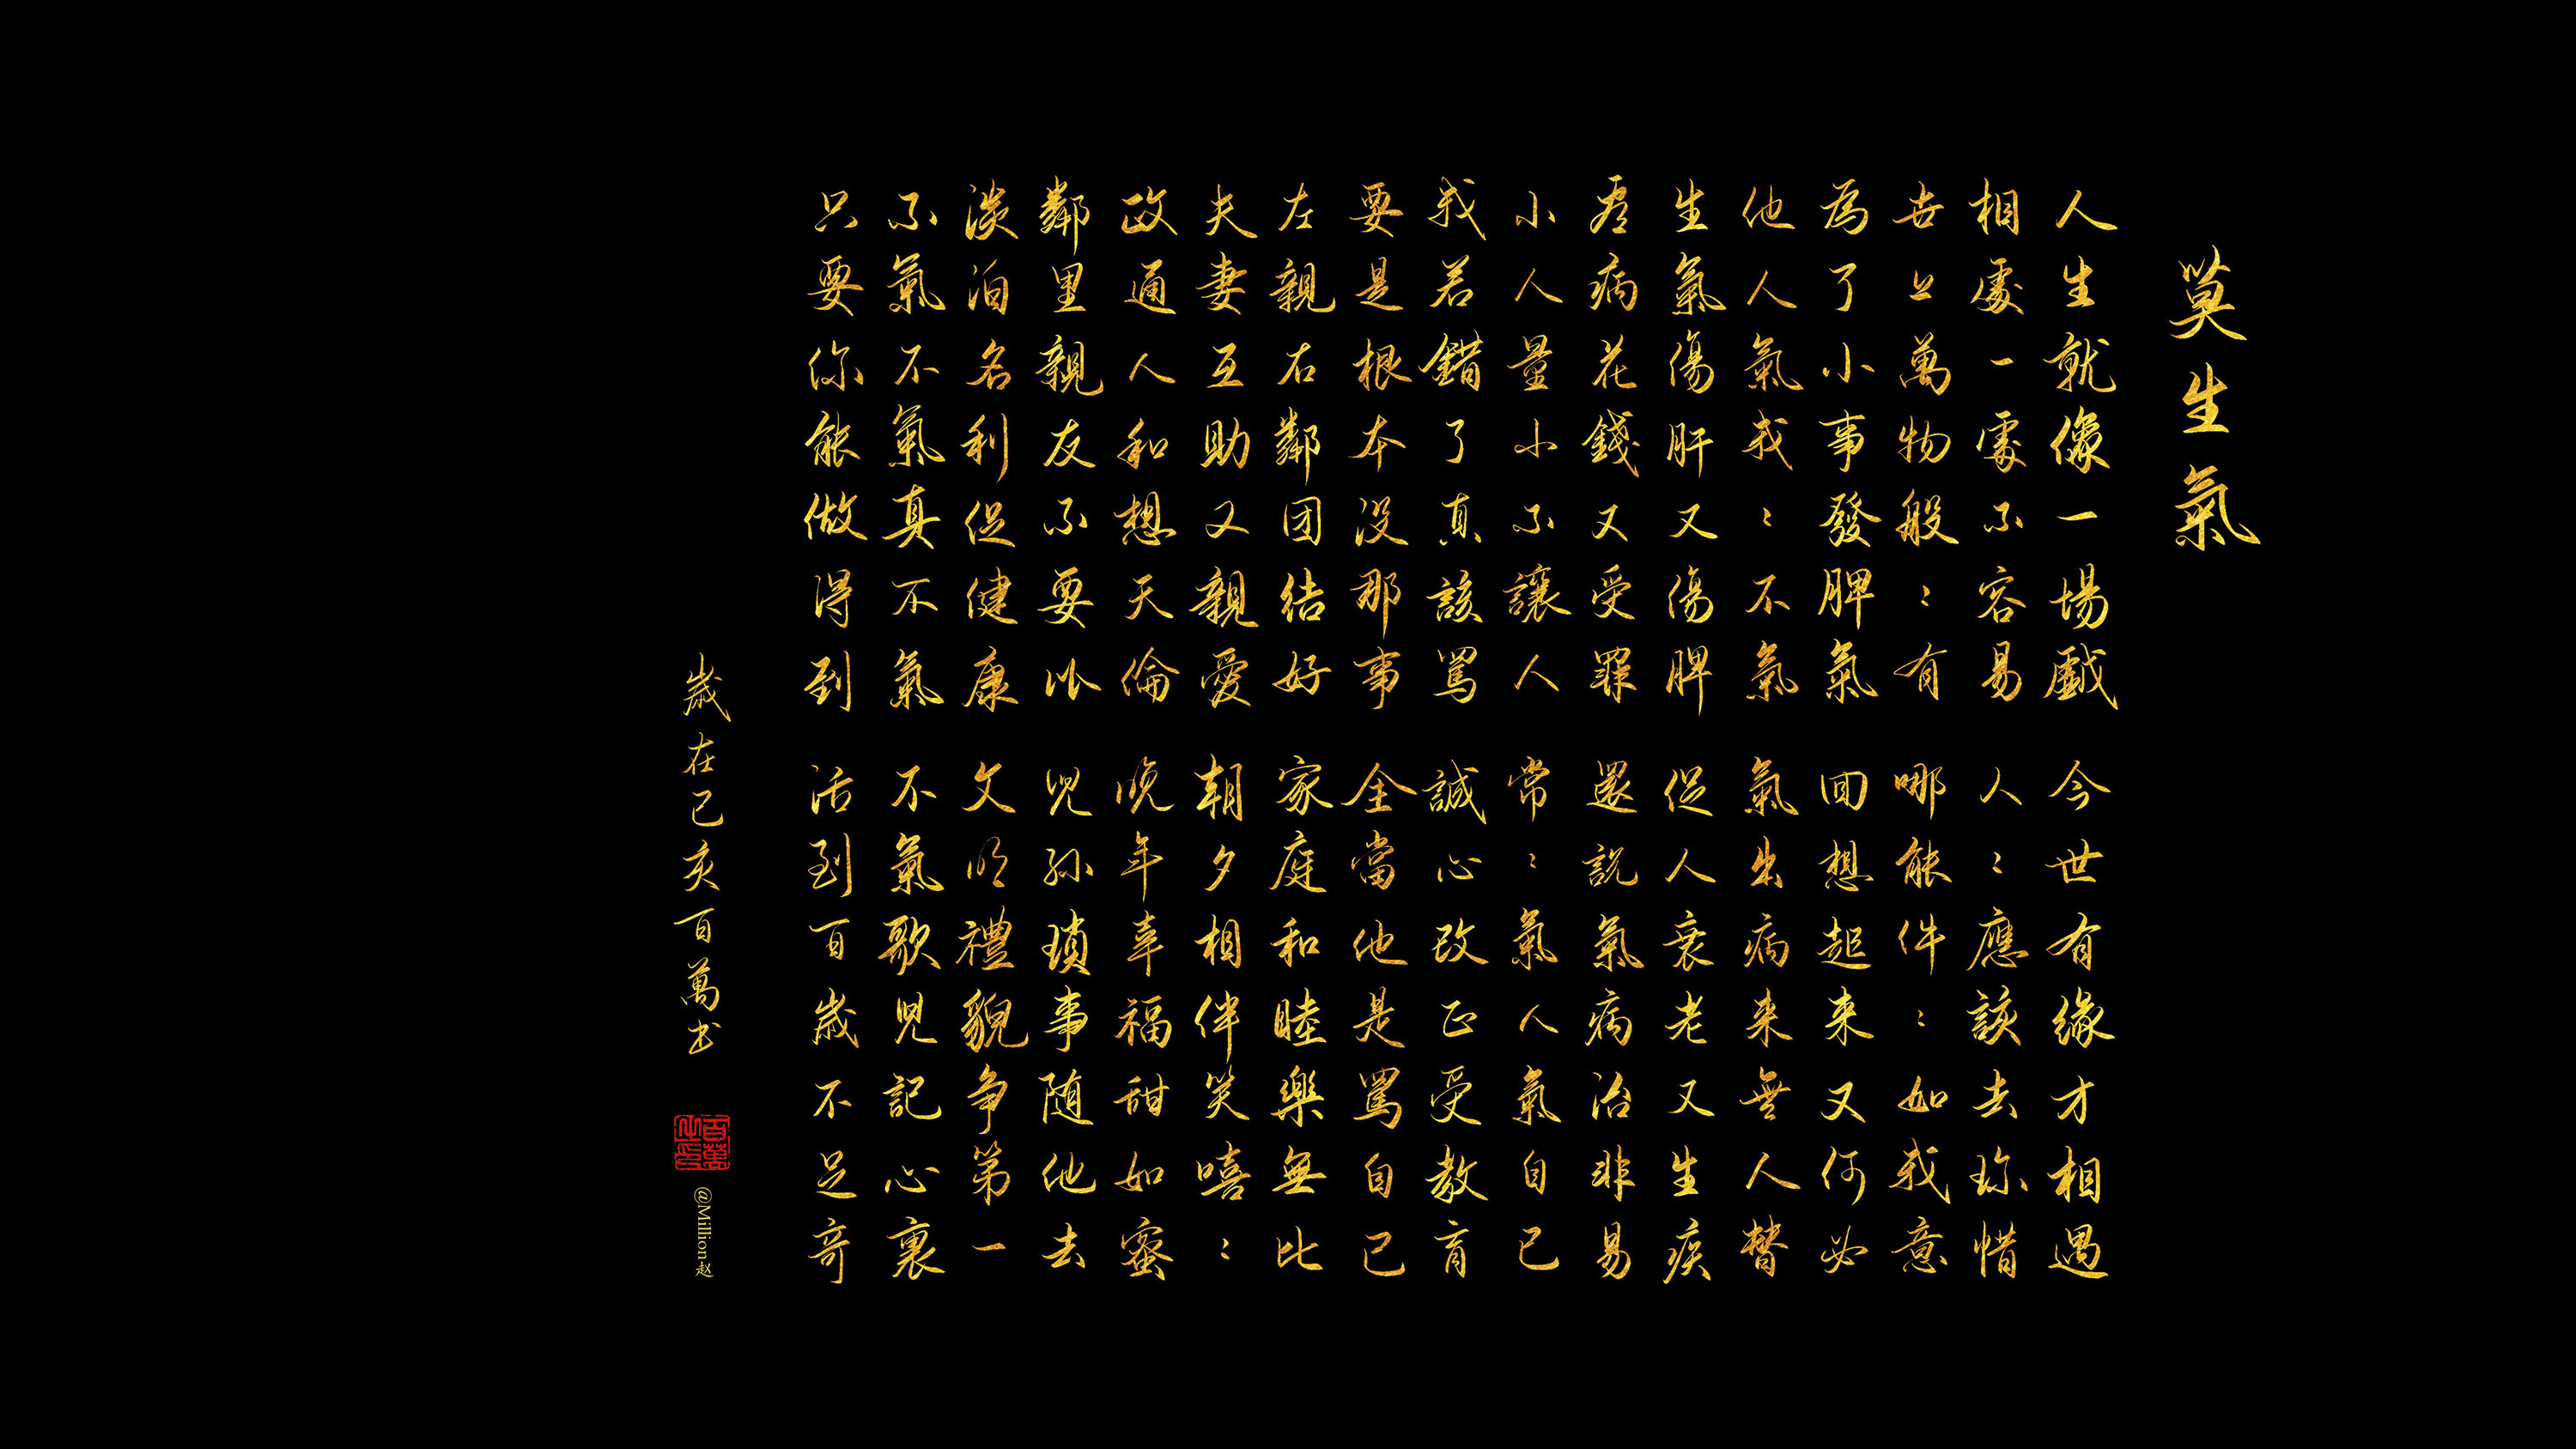 莫生氣
人生就像一場戲 今世有緣才相遇
相處一處不容易 人〻應該去珍惜
世上萬物般〻有 哪能件〻如我意
為了小事發脾氣 回想起来又何必
他人氣我〻不氣 氣出病来無人替
生氣傷肝又傷脾 促人衰老又生疾
看病花錢又受罪 還說氣病治非易
小人量小不讓人 常〻氣人氣自己
我若錯了真該罵 誠心改正受教育
要是根本没那事 全當他是罵自己
左親右鄰团結好 家庭和睦樂無比
夫妻互助又親愛 朝夕相伴笑嘻〻
政通人和想天倫 晚年幸福甜如蜜
鄰里親友不要比 兒孫瑣事随他去
淡泊名利促健康 文明禮貌争第一
不氣不氣真不氣 不氣歌兒記心裏
只要你能做得到 活到百歲不足奇
歲在己亥百萬书
百萬之印
@Million赵